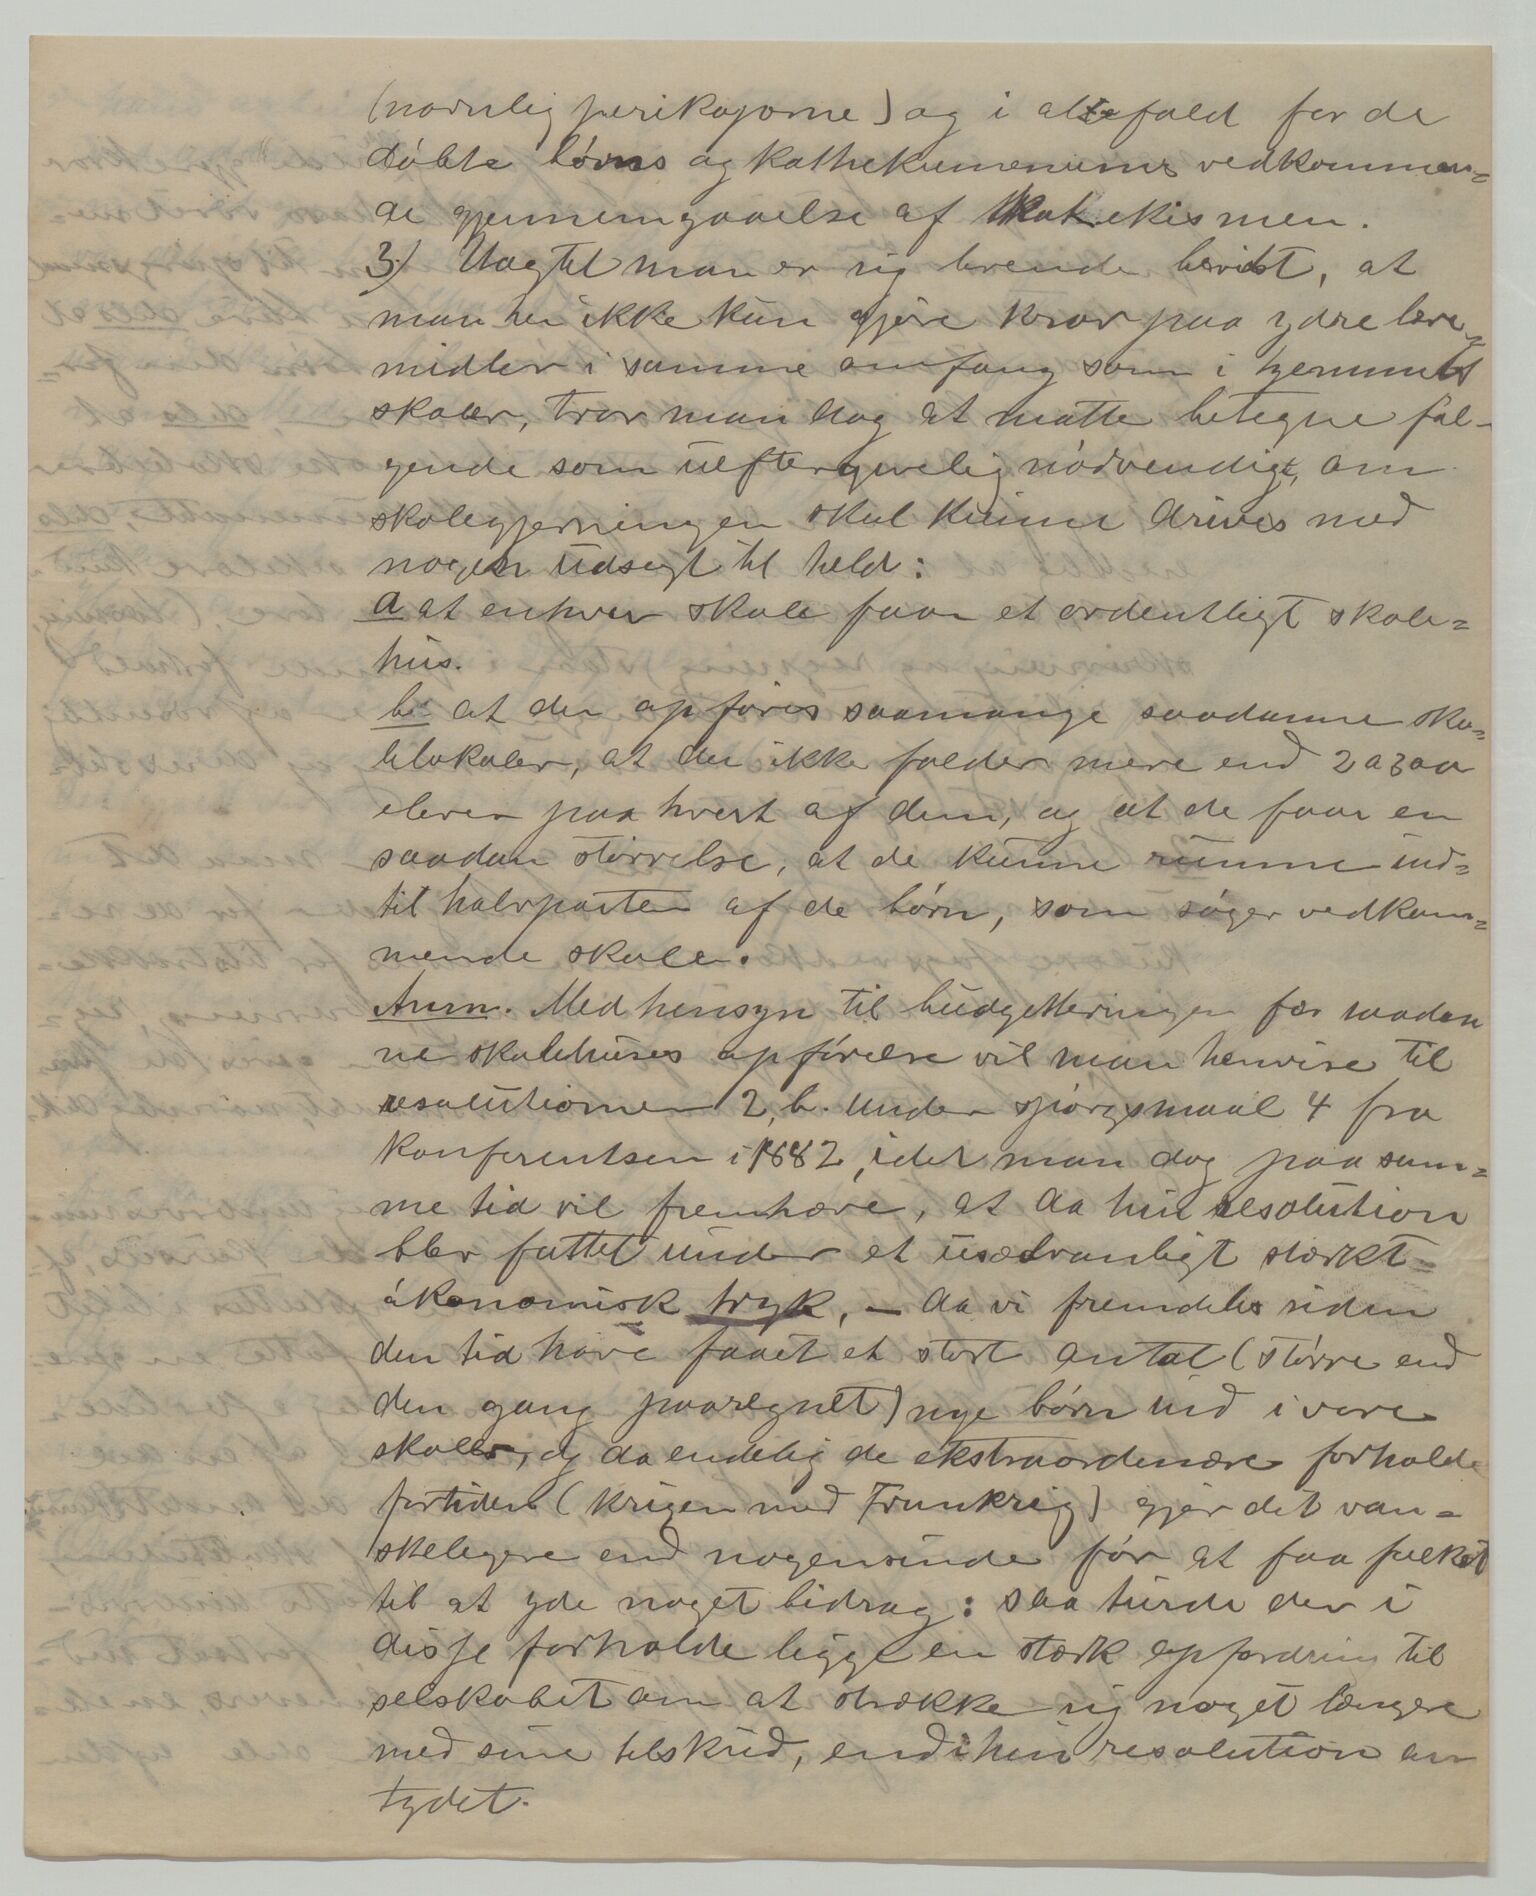 (navnlig perikoperne) og i alle fald for de
døbte børns og kathekumenernes vedkommen=
de gjennemgaaelse af Katekismen.
3.) Uagtet man er sig levende bevidst, at
man her ikke kan gjøre krav paa ydre lære=
midler i samme omfang som i hjemmets
skoler, tror man dog at maatte betegne føl-
gende som uefter­givelig nødvendigt, om
skolegjerningen skal kunne drives med
nogen udsigt til held:
a at enhver skole faar et ordentligt skole=
hus.
b. at der opføres saamange saadanne sko=
lelokaler, at der ikke falder mere end 2 a 300
elever paa hvert af dem, og at de faar en
saadan størrelse, at de kunne rumme ind=
til halvparten af de børn, som søger vedkom=
mende skole.
Anm. Med hensyn til budgetteringen for saadan
ne skolehuses opførelse vil man henvise til
resolutionen 2, b. under spørgsmaal 4 fra
konferentsen i 1882, idet man dog paa sam=
me tid vil fremhæve, at da hin resolution
blev fattet under et usædvanligt stærkt
økonomisk tryk, – da vi fremdeles siden
den tid have faaet et stort antal (større end
den gang paaregnet) nye børn ind i vore
skoler, og da endelig de ekstraordenære forholde
fortiden (krigen med Frankrig) gjør det van=
skeligere end nogensinde før at faa folket
til at yde noget bidrag: saa turde der i
disse forholde ligge en stærk opfordring til
selskabet om at strække sig noget længere
med sine tilskud, end i hin resolution an
tydet.